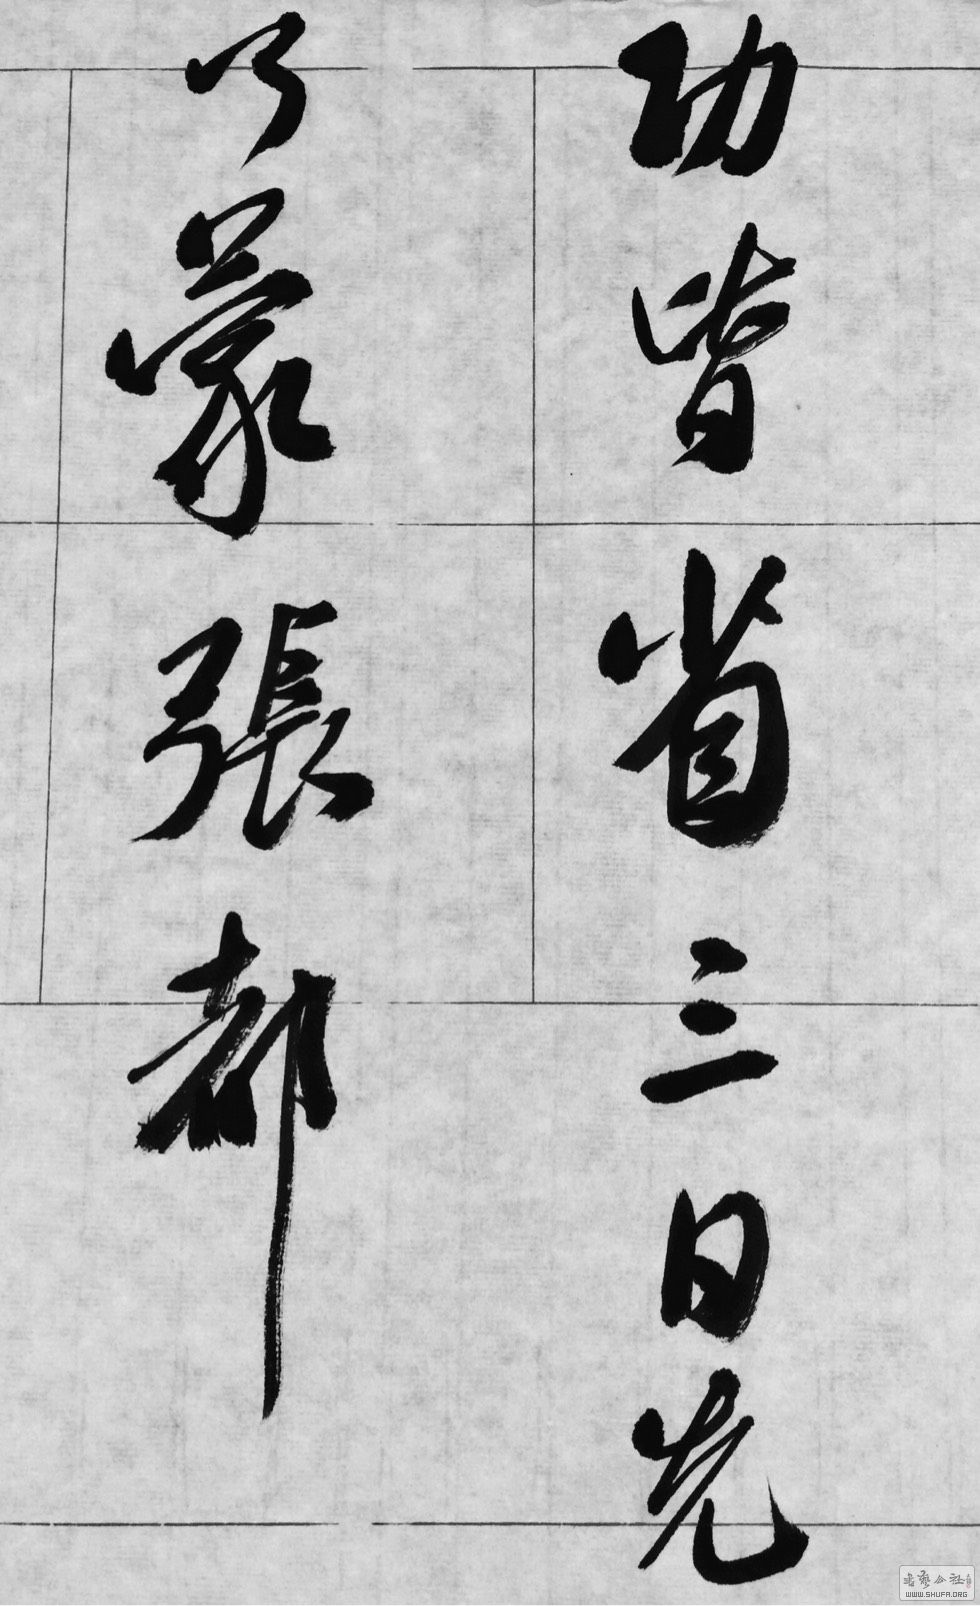 功皆省三日先
了蒙張都
書藝公社
WWW.SHUFA.ORG